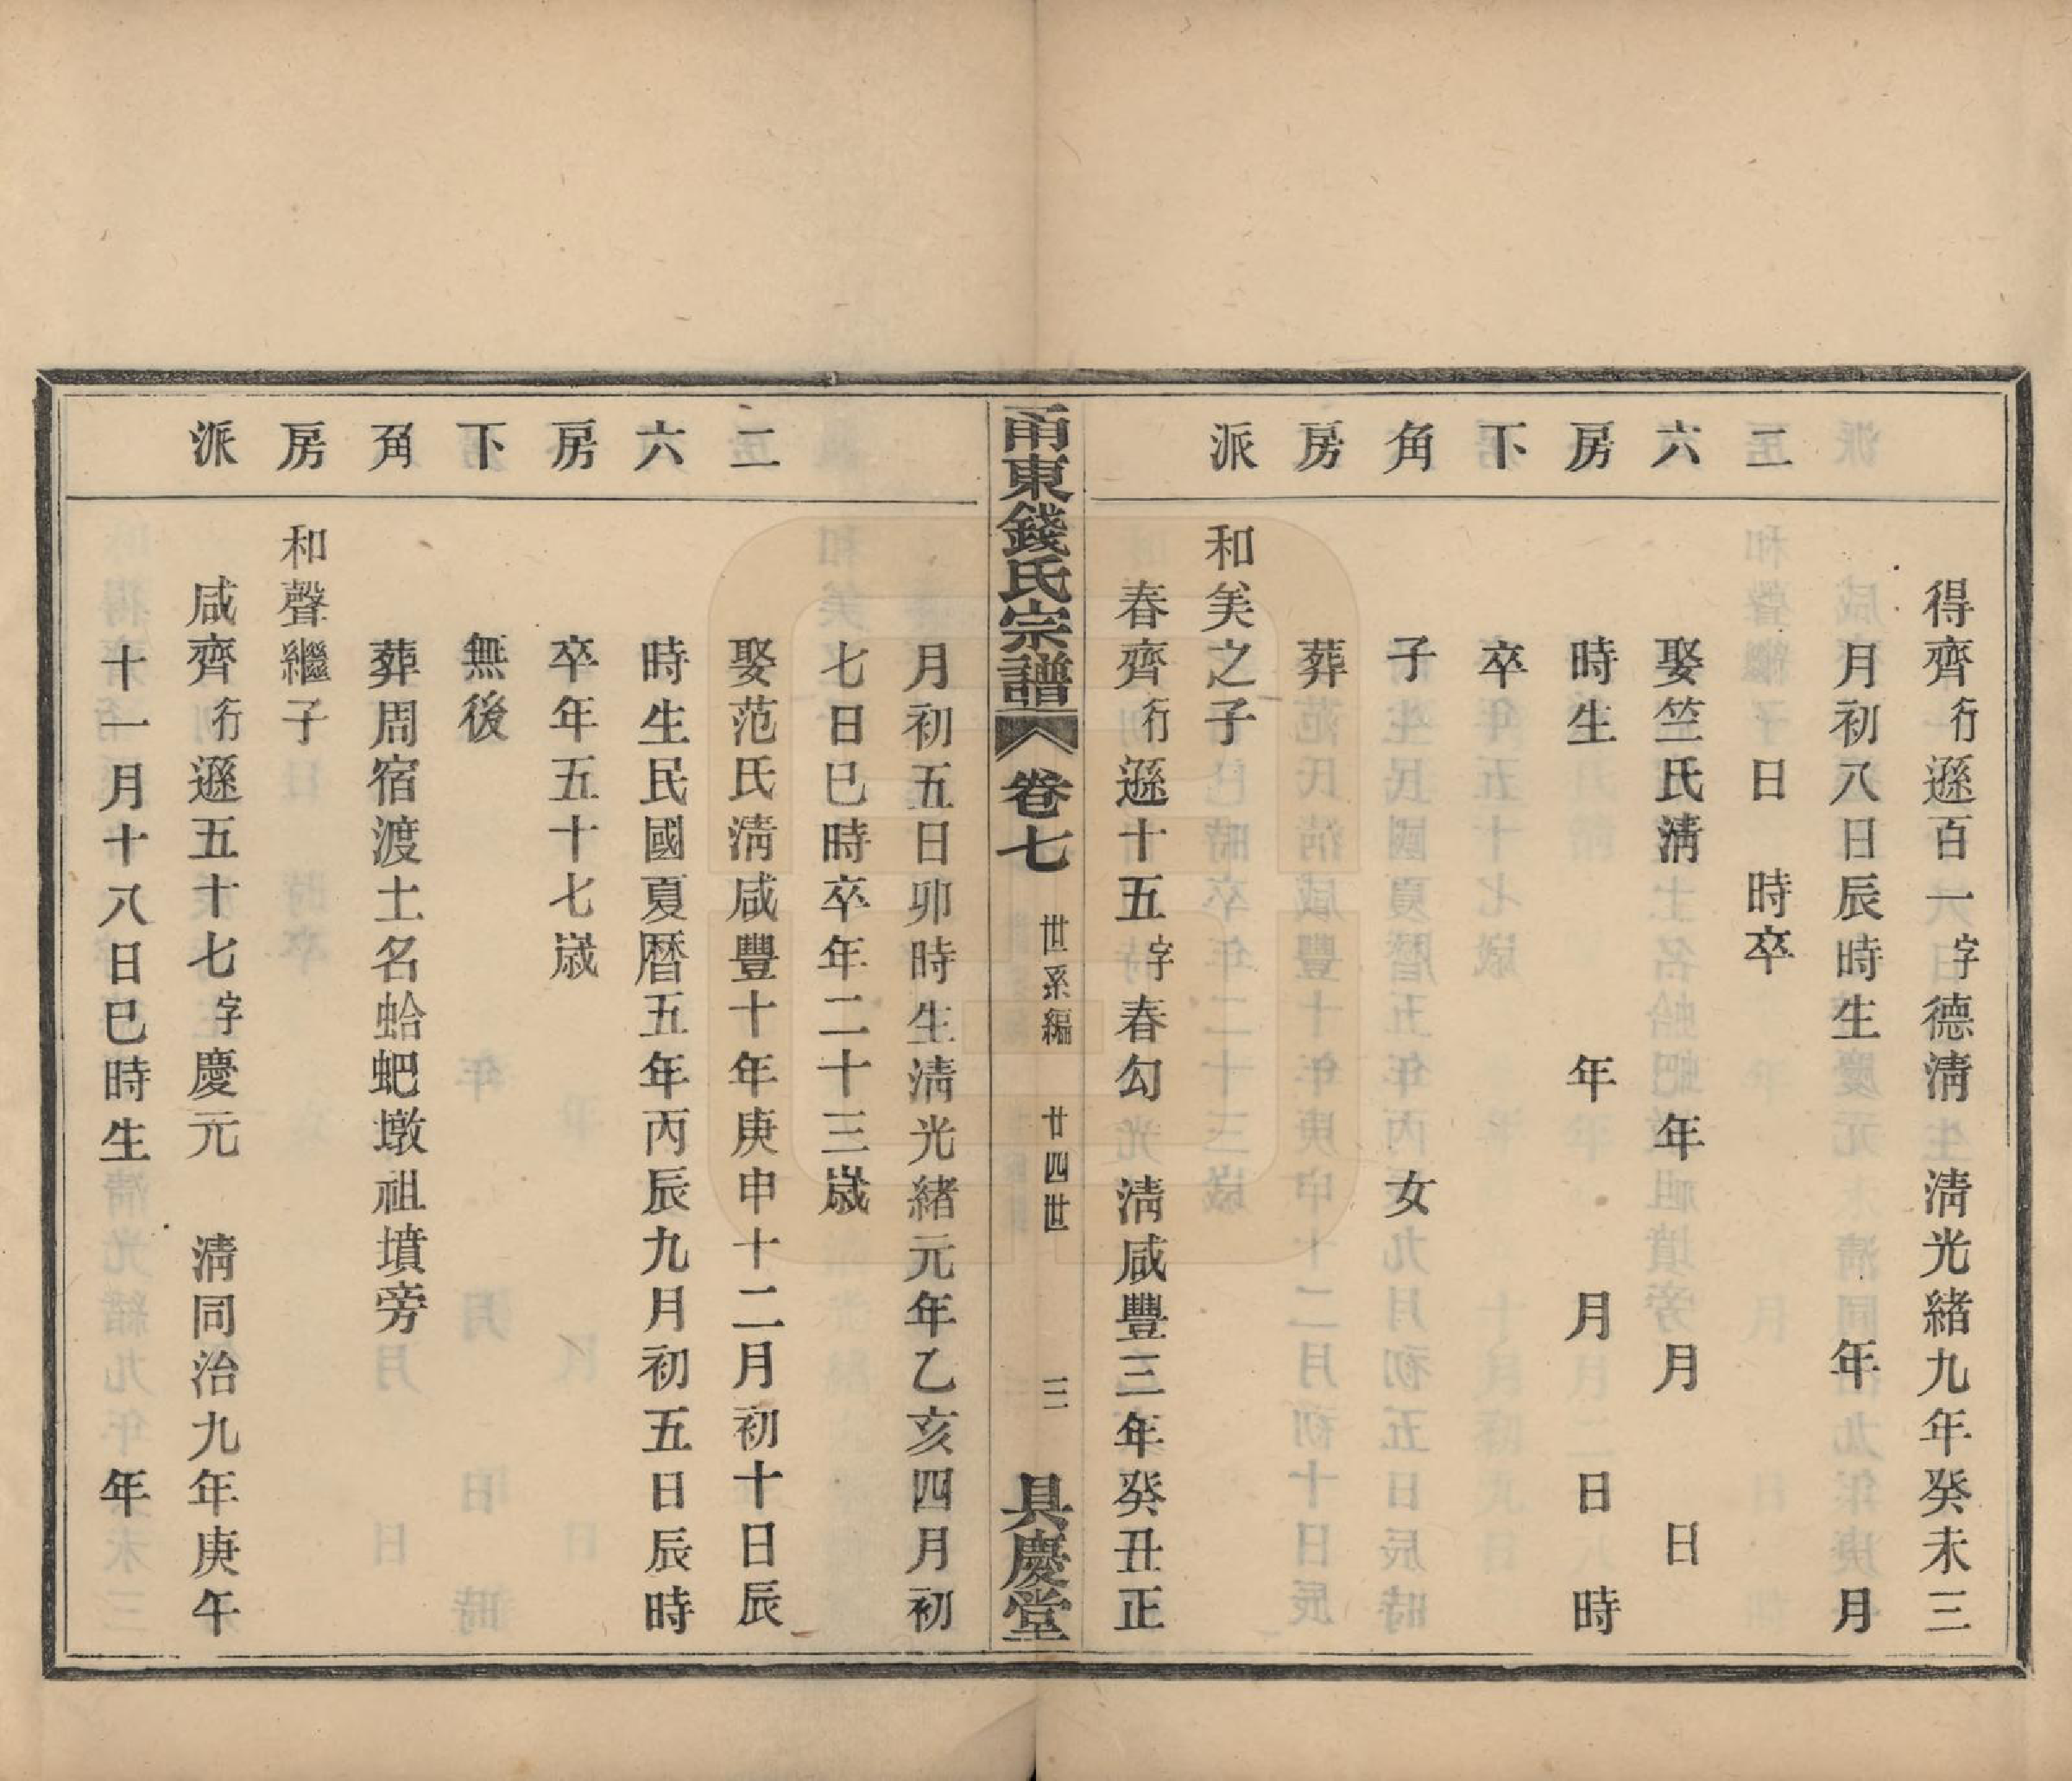 二六房下角房派
得齊行遜百一字德淸　淸光緒九年癸未三
月初八日辰時生　年　月
日　時卒
娶竺氏淸　年　月　日
時生　年　月　日　時
卒
子　女
葬
和羑之子
春齊行遜十五字春勾　淸咸豐三年癸丑正
甬東錢氏宗譜　卷七　世系編　廿四世　三　具慶堂
二六房下角房派
月初五日卯時生淸光緒元年乙亥四月初
七日巳時卒年二十三歲
娶范氏淸咸豐十年庚申十二月初十日辰
時生民國夏曆五年丙辰九月初五日辰時
卒年五十七歲
無後
葬周宿渡土名蛤蚆墩祖墳旁
和聲繼子
咸齊行遜五十七字慶元　淸同治九年庚午
十一月十八日巳時生　年